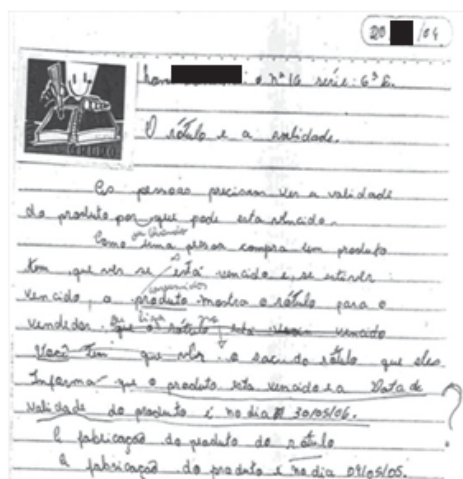 20 /04
nº 16 série: 6ª E.
O rótulo e a validade.
As pessoas precisam ver a validade
do produto por que pode esta vencido.
Como uma pessoa compra um produto
tem que ver se está vencido e, se estiver
vencido, a produto mostra o rótulo para o
vendedor que o rótulo esta vencido
Você tem que ver o sac do rótulo que eles
Informa que o produto esta vencido e a Data de
validade do produto é no dia 30/05/06. ?
E fabricaçaõ do produto do rótulo
A fabricaçaõ do produto é no dia 09/05/05.